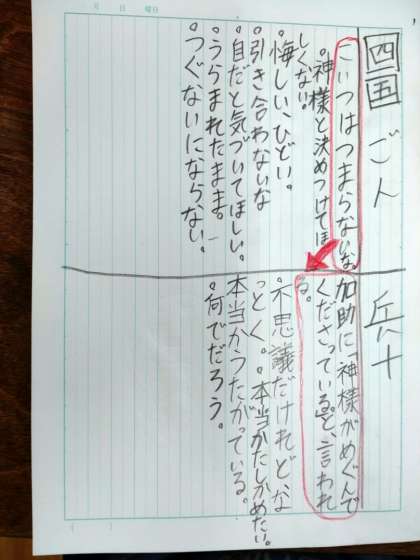 月 日 曜日
四国
ごん
こいつはつまらないな。
・神様と決めつけてほ
しくない。
・悔しい、ひどい。
・引き合わないな
・自だと気づいてほしい。
・うらまれたまま。
・つぐないにならない。
兵十
加助に「神様がめぐんで
くださっている」と、言われ
る。
・不思議だけれど、な
っとく。・本当かたしかめたい。
本当かうたがっている。
・何でだろう。